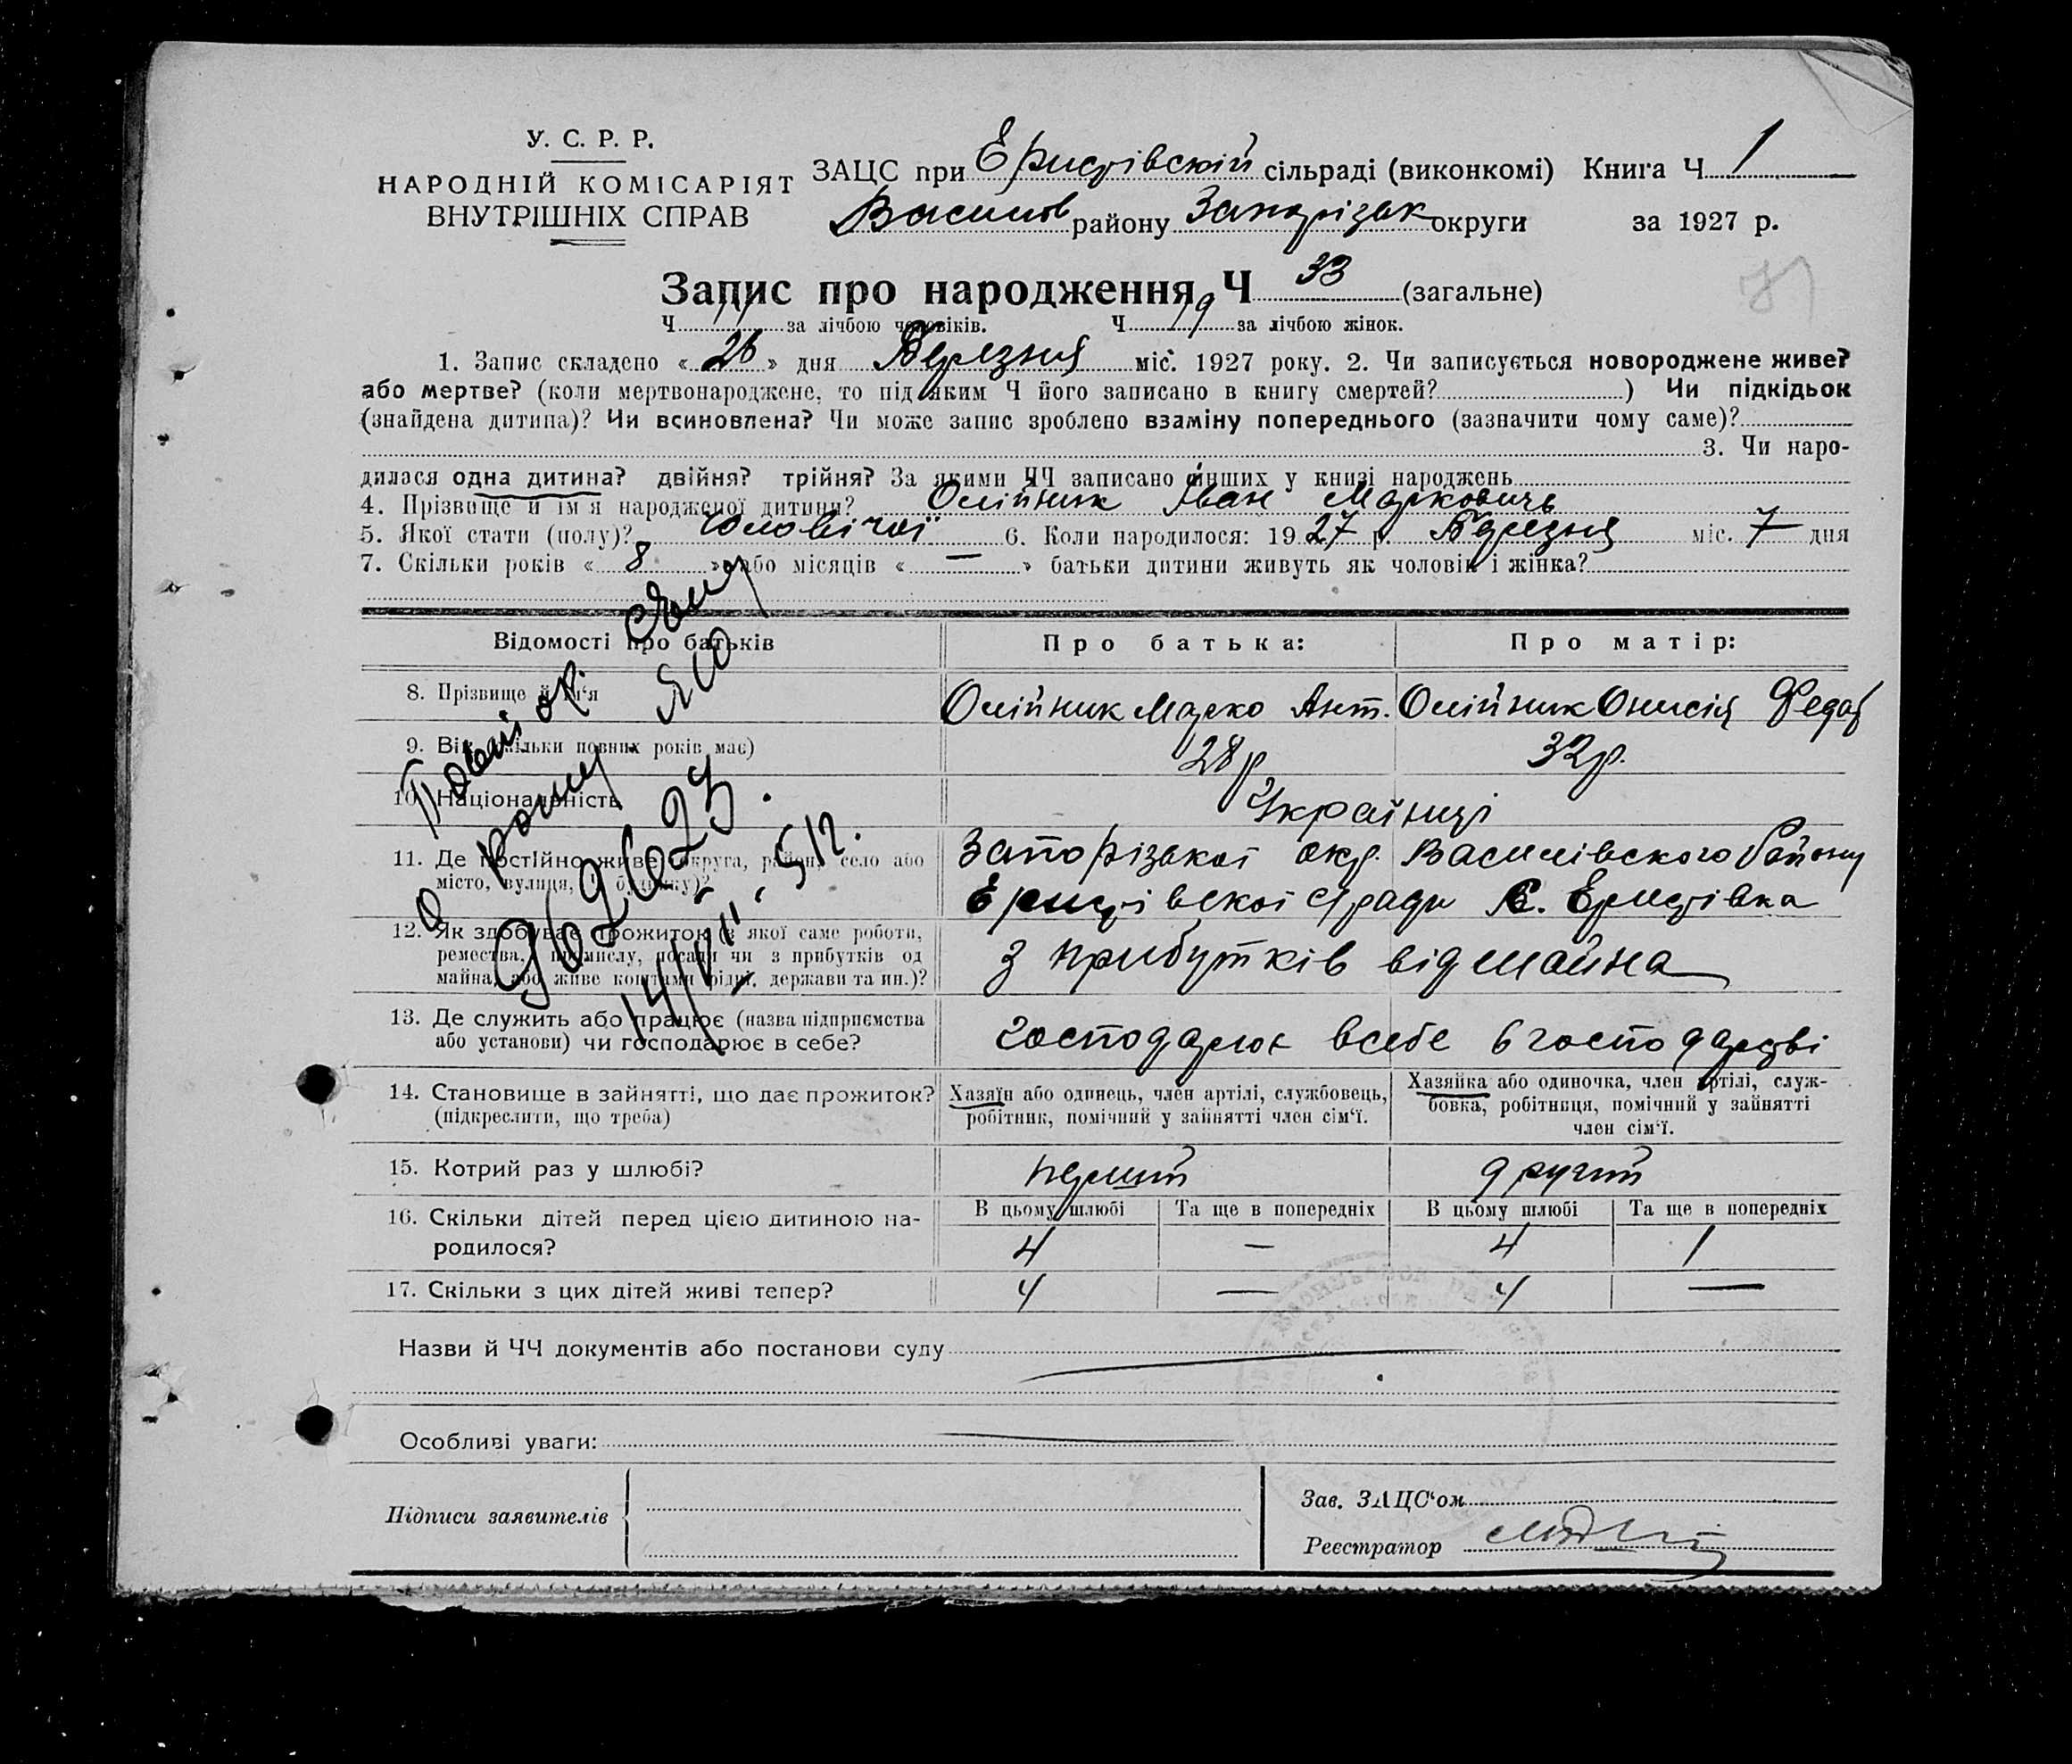 У. С. Р. Р.
НАРОДНІЙ КОМІСАРІЯТ
ВНУТРІШНІХ СПРАВ
ЗАЦС при Еристівскій сільраді (виконкомі) Книга Ч 1
Василів району Запорізьк округи за 1927 р.
Запис про народження Ч 33 (загальне)
Ч за лічбою чоловіків. Ч 19 за лічбою жінок.
1. Запис складено « 26 » дня Березня міс. 1927 року. 2. Чи записується новороджене живе?
або мертве? (коли мертвонароджене, то під яким Ч його записано в книгу смертей? ) Чи підкідьок
(знайдена дитина)? Чи всиновлена? Чи може запис зроблено взаміну попереднього (зазначити чому саме)?
3. Чи наро-
дилася одна дитина? двійня? трійня? За якими ЧЧ записано інших у книзі народжень
4. Прізвище й ім'я народженої дитини? Олійник Іван Маркович
5. Якої стати (полу)? чоловічої 6. Коли народилося: 1927 р. Березня міс. 7 дня
7. Скільки років « 8 » або місяців « — » батьки дитини живуть як чоловік і жінка?
Відомості про батьків Про батька: Про матір:
8. Прізвище й ім'я Олійник Марко Ант. Олійник Онисія Федор
9. Вік (скільки повних років має) 28 р 32 р.
10. Національність Українці
11. Де постійно живе (округа, район, село або Запорізької окр. Василівского Району
місто, вулиця, Ч будинку)? Еристівскої с/ради с. Еристівка
12. Як здобуває прожиток (з якої саме роботи,
ремества, промислу, посади чи з прибутків од з прибутків від майна
майна, або живе коштами рідні, держави та ин.)?
13. Де служить або працює (назва підприємства
або установи) чи господарює в себе? господарює всебе в господарстві
14. Становище в зайнятті, що дає прожиток? Хазяїн або одинець, член артілі, службовець, Хазяйка або одиночка, член артілі, служ-
(підкреслити, що треба) робітник, помічний у зайнятті член сім'ї. бовка, робітниця, помічний у зайнятті
член сім'ї.
15. Котрий раз у шлюбі? перший другий
16. Скільки дітей перед цією дитиною на- В цьому шлюбі Та ще в попередніх В цьому шлюбі Та ще в попередніх
родилося? 4 — 4 1
17. Скільки з цих дітей живі тепер? 4 — 4 —
Назви й ЧЧ документів або постанови суду
Особливі уваги:
Підписи заявителів
Зав. ЗАЦС'ом
Реєстратор